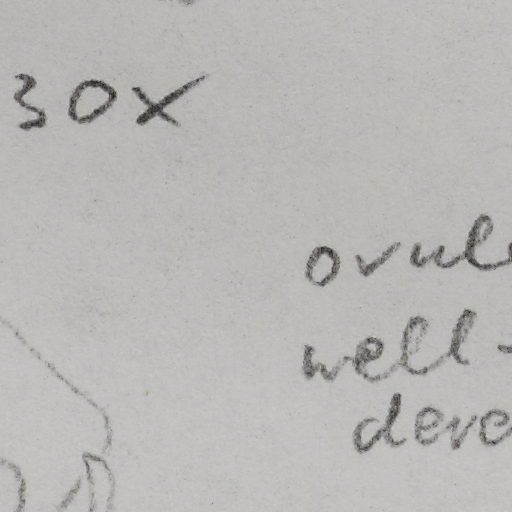 30x
ovule
well-
deve